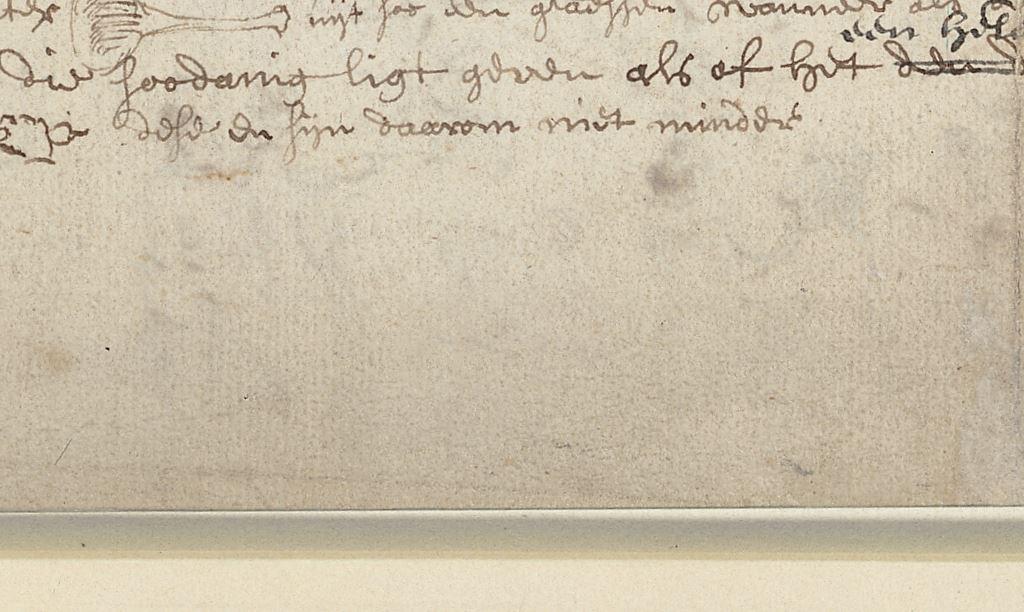 uijt soo een gladssen wanneer als
een hel
die soodanig ligt geven als of het den
dese en sijn daarom niet minder